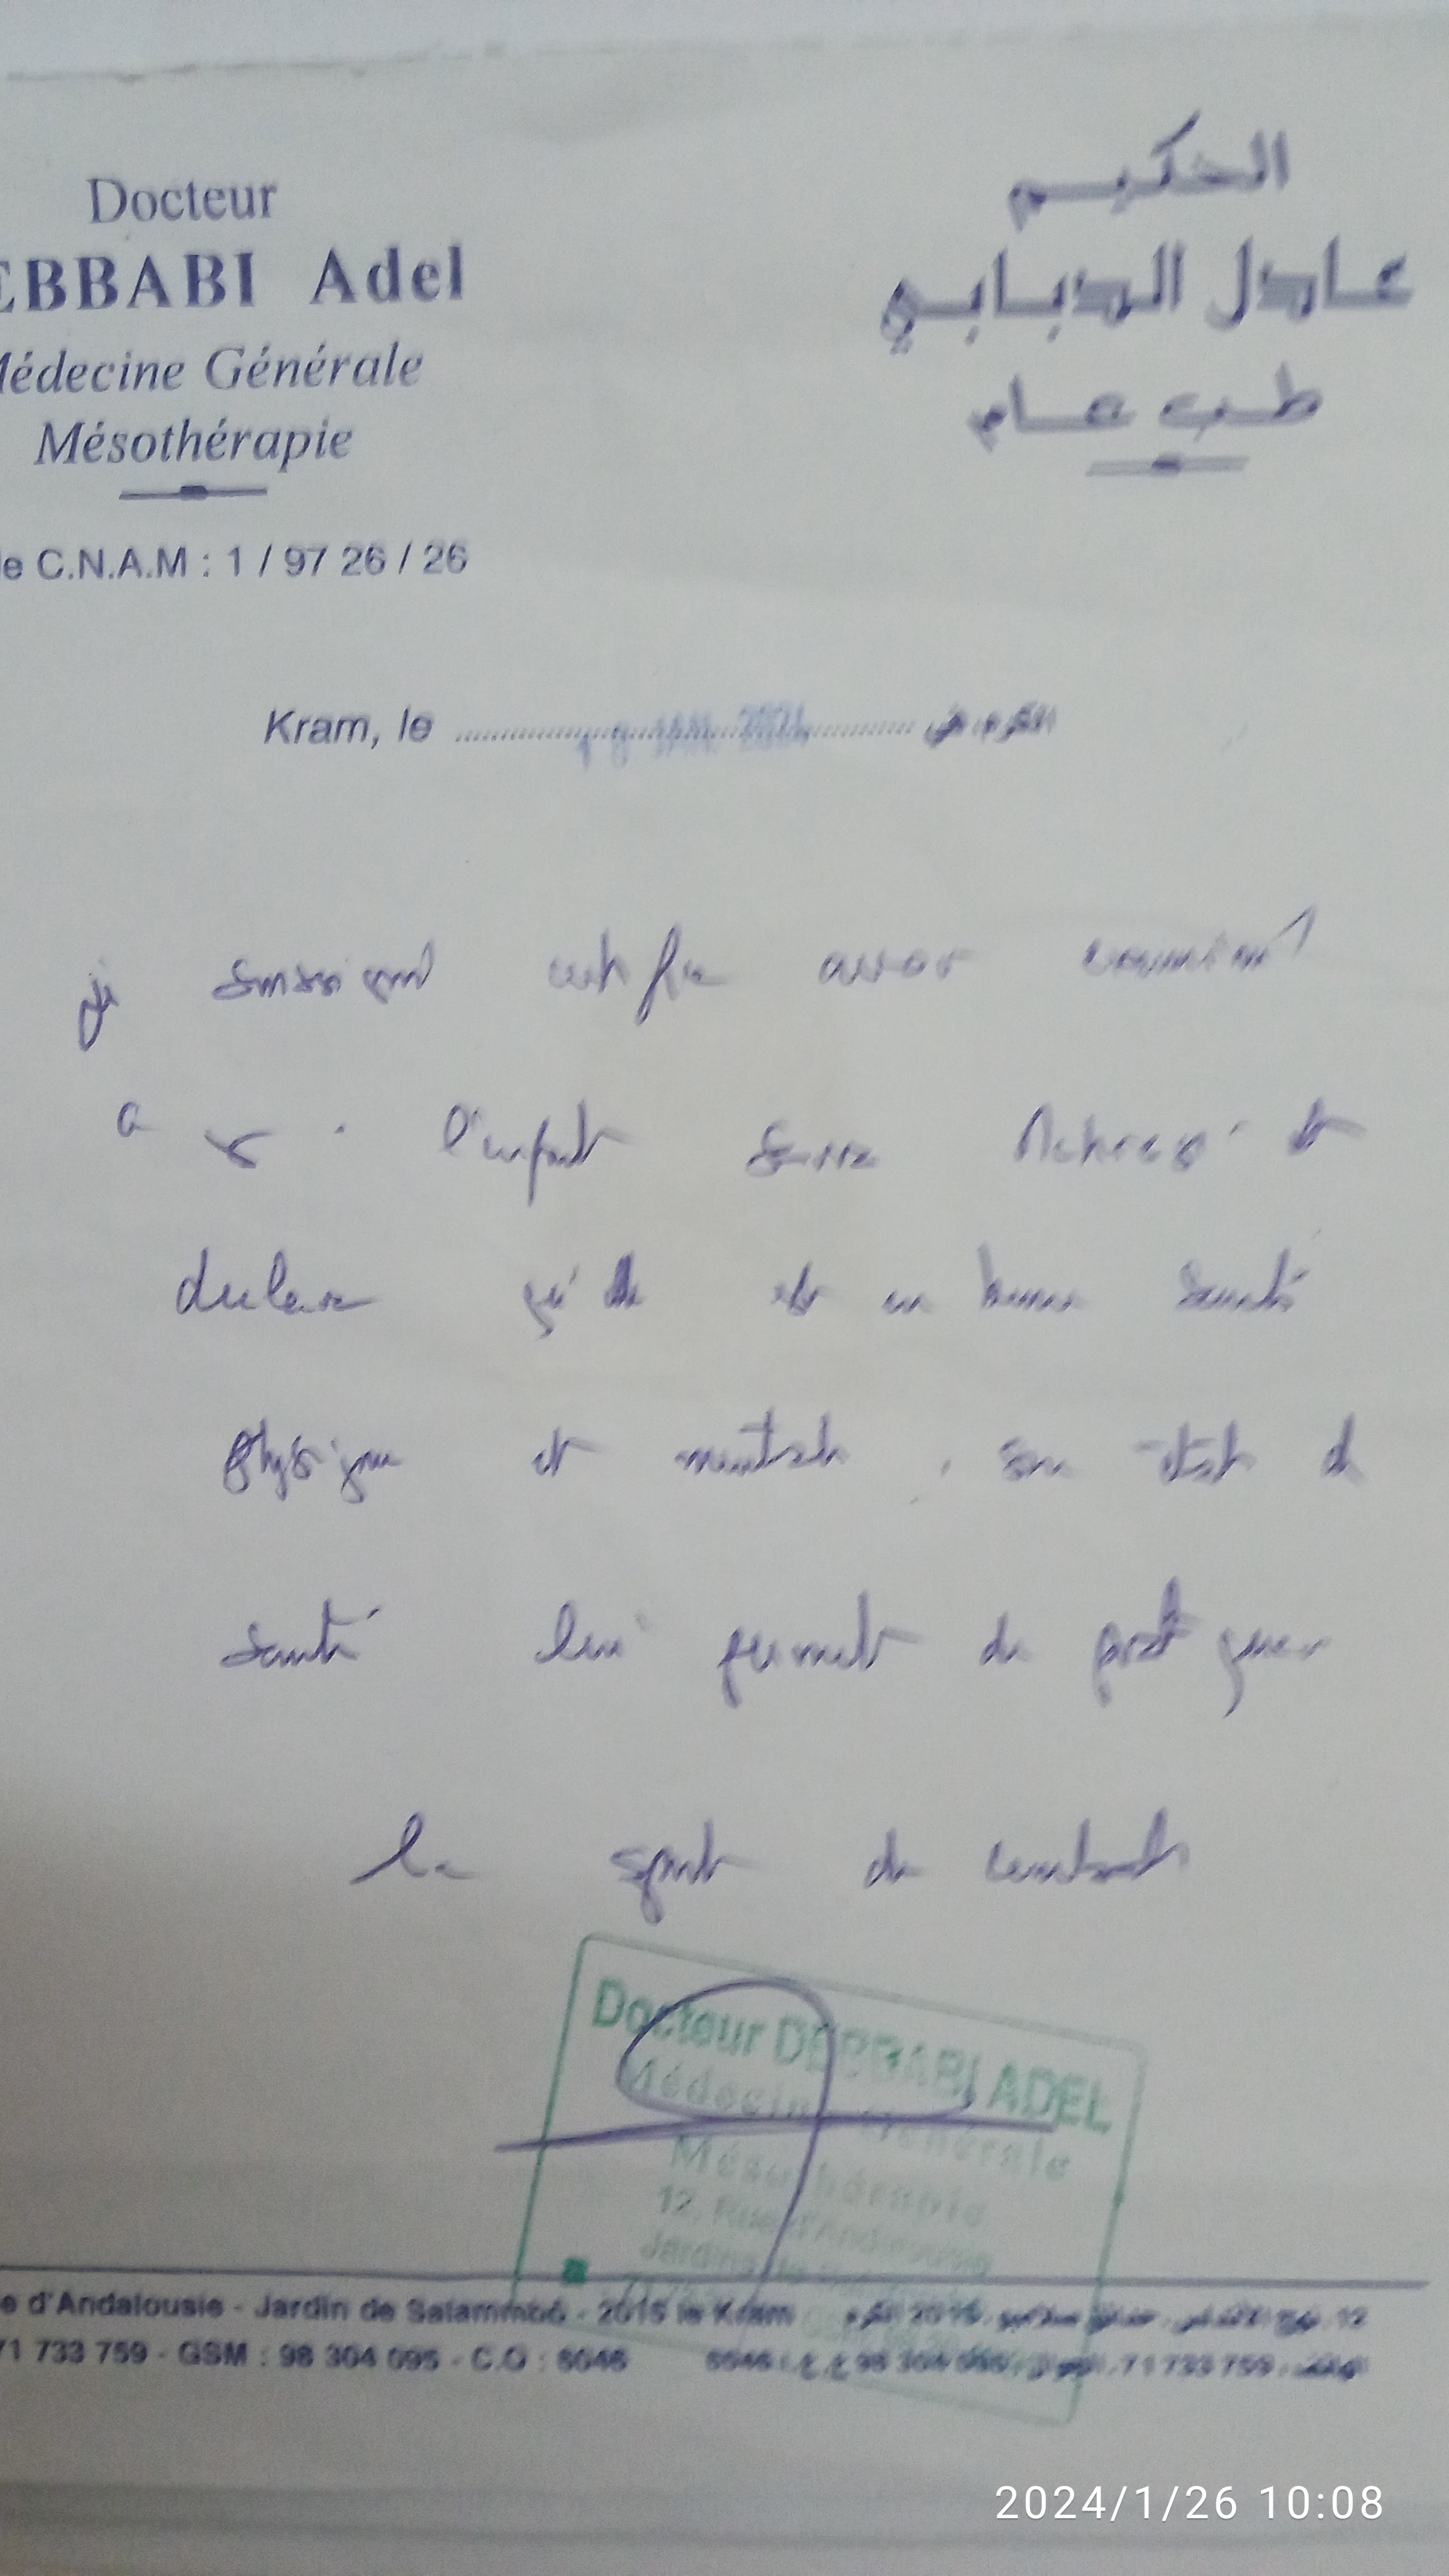 Docteur
EBBABI Adel
Médecine Générale
Mésothérapie
le C.N.A.M : 1 / 97 26 / 26
الحكيم
عادل الدبابي
طب عام
Kram, le ........ JAN. 2024 ........ الكرم في
je soussigné certifie avoir examiné
a l'enfant et
declare qu'elle est en bonne santé
physique et mentale, son état de
santé lui permet de pratiquer
le sport de contact
Docteur DEBBABI ADEL
Médecine Générale
Mésothérapie
12, Rue d'Andalousie
e d'Andalousie - Jardin de Salammbô - 2015 le Kram
12، نهج الأندلس، حدائق صلامبو، 2015 الكرم
71 733 759 - GSM : 98 304 095 - C.O : 6046
2024/1/26 10:08